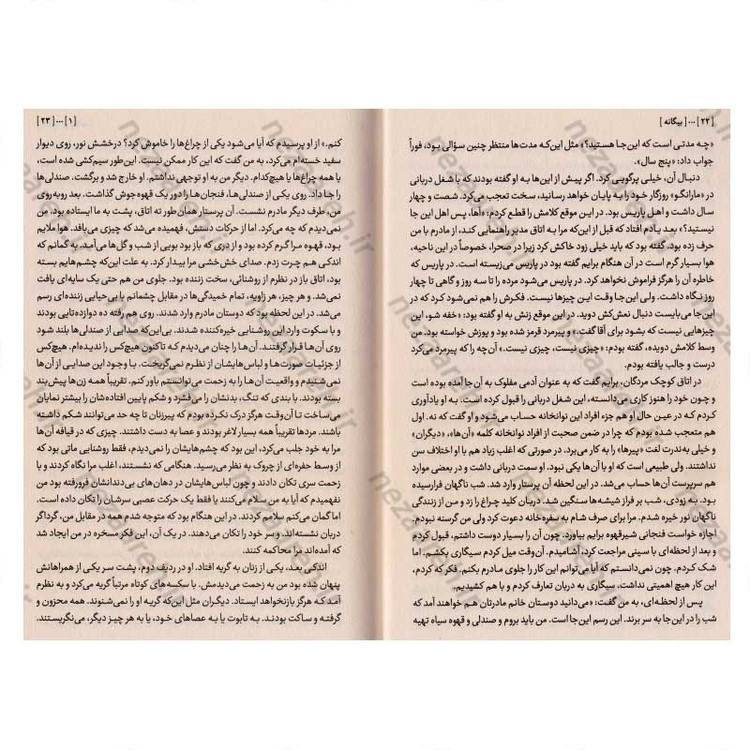 [۲۲] ... [بیگانه]
«چه مدتی است که این‌جا هستید؟» مثل این‌که مدت‌ها منتظر چنین سؤالی بود، فوراً
جواب داد: «پنج سال».
دنبال آن، خیلی پرگویی کرد. اگر پیش از این‌ها به او گفته بودند که با شغل دربانی
در «مارانگو» روزگار خود را به پایان خواهد رسانید، سخت تعجب می‌کرد. شصت و چهار
سال داشت و اهل پاریس بود. در این موقع کلامش را قطع کردم: «آها، پس اهل این جا
نیستید؟» بعد یادم افتاد که قبل از این‌که مرا به اتاق مدیر راهنمایی کند، از مادرم با من
حرف زده بود. گفته بود که باید خیلی زود خاکش کرد زیرا در صحرا، خصوصاً در این ناحیه،
هوا بسیار گرم است در آن هنگام برایم گفته بود در پاریس می‌زیسته است. در پاریس که
خاطره آن را هرگز فراموش نخواهد کرد. در پاریس می‌شود مرده را تا سه روز و گاهی تا چهار
روز نگاه داشت. ولی این‌جا وقت این چیزها نیست. فکرش را هم نمی‌شود کرد که در
این‌جا می‌بایست دنبال نعش‌کش دوید. در این موقع زنش به او گفته بود: «خفه شو، این
چیزهایی نیست که بشود برای آقا گفت.» و پیرمرد قرمز شده بود و پوزش خواسته بود. من
وسط کلامش دویده، گفته بودم: «چیزی نیست، چیزی نیست.» آن‌چه را که پیرمرد می‌کرد
درست و جالب یافته بودم.
در اتاق کوچک مردگان، برایم گفت که به عنوان آدمی مفلوک به آن‌جا آمده بوده است
و چون خود را هنوز کاری می‌دانسته، این شغل دربانی را قبول کرده است. به او یادآوری
کردم که در عین حال او هم جزء افراد این نوانخانه حساب می‌شود و او گفت که نه. اول
هم متعجب شده بودم که چرا در ضمن صحبت از افراد نوانخانه کلمه «آن‌ها»، «دیگران»
و خیلی به‌ندرت لغت «پیرها» را به کار می‌برد. در صورتی که اغلب زیاد هم با او اختلاف سن
نداشتند. ولی طبیعی است که او با آن‌ها یکی نبود. او سمت دربانی داشت و در بعضی موارد
هم سرپرست آن‌ها حساب می‌شد. در این لحظه آن پرستار وارد شد. شب ناگهان فرارسیده
بود. به زودی، شب بر فراز شیشه‌ها سنگین شد. دربان کلید چراغ را زد و من از زنندگی
ناگهان نور خیره شدم. مرا برای صرف شام به سفره‌خانه دعوت کرد ولی من گرسنه نبودم.
اجازه خواست فنجانی شیرقهوه برایم بیاورد. چون آن را بسیار دوست داشتم، قبول کردم
و بعد از لحظه‌ای با سینی مراجعت کرد. آشامیدم. آن‌وقت میل کردم سیگاری بکشم. اما
شک کردم. چون نمی‌دانستم که آیا می‌توانم این کار را جلوی مادرم بکنم. فکر که کردم،
این کار هیچ اهمیتی نداشت. سیگاری به دربان تعارف کردم و با هم کشیدیم.
پس از لحظه‌ای، به من گفت: «می‌دانید دوستان خانم مادرتان هم خواهند آمد که
شب را در این‌جا به سر برند. این رسم این‌جا است. من باید بروم و صندلی و قهوه سیاه تهیه
[۱] ... [۲۳]
کنم.» از او پرسیدم که آیا می‌شود یکی از چراغ‌ها را خاموش کرد؟ درخشش نور، روی دیوار
سفید خسته‌ام می‌کرد، به من گفت که این کار ممکن نیست. این‌طور سیم‌کشی شده است،
یا همه چراغ‌ها یا هیچ‌کدام. دیگر من به او توجهی نداشتم. او خارج شد و برگشت. صندلی‌ها
را جا داد. روی یکی از صندلی‌ها، فنجان‌ها را دور یک قهوه‌جوش گذاشت. بعد روبه‌روی
من، طرف دیگر مادرم نشست. آن پرستار همان‌طور ته اتاق، پشت به ما ایستاده بود. من
نمی‌دیدم که چه می‌کرد. اما از حرکات دستش، فهمیدم که چیزی می‌بافد. هوا ملایم
بود، قهوه مرا گرم کرده بود و از دری که باز بود بویی از شب و گل‌ها می‌آمد. به گمانم که
اندکی هم چرت زدم. صدای خش‌خشی مرا بیدار کرد. به علت این‌که چشم‌هایم بسته
بود، اتاق باز در نظرم از روشنائی، سخت زننده بود. جلوی من هم حتی یک سایه‌ای یافت
نمی‌شد. و هر چیز، هر زاویه، تمام خمیدگی‌ها در مقابل چشمانم با بی‌حیایی زننده‌ای رسم
می‌شد. در این لحظه بود که دوستان مادرم وارد شدند. روی هم رفته ده دوازده‌تایی بودند
و با سکوت وارد این روشنایی خیره‌کننده شدند. بی‌این‌که صدایی از صندلی‌ها بلند شود
روی آن‌ها قرار گرفتند. آن‌ها را چنان می‌دیدم که تاکنون هیچ‌کس را ندیده‌ام. هیچ‌کس
از جزئیات صورت‌ها و لباس‌هایشان از نظرم نمی‌گریخت. با وجود این صدایی از آن‌ها
نمی‌شنیدم و واقعیت آن‌ها را به زحمت می‌توانستم باور کنم. تقریباً همه زن‌ها پیش‌بند
بسته بودند. با بندی که تنگ، بدنشان را می‌فشرد و شکم پایین افتاده‌شان را بیشتر نمایان
می‌ساخت تا آن وقت هرگز درک نکرده بودم که پیرزنان تا چه حد می‌توانند شکم داشته
باشند. مردها تقریباً همه بسیار لاغر بودند و عصا به دست داشتند. چیزی که در قیافه آن‌ها
مرا به خود جلب می‌کرد، این بود که چشم‌هایشان را نمی‌دیدم، فقط روشنایی ماتی بود که
از وسط حفره‌ای از چروک به نظر می‌رسید. هنگامی که نشستند، اغلب مرا نگاه کردند و با
زحمت سری تکان دادند و چون لباس‌هایشان در دهان‌های بی‌دندانشان فرورفته بود من
نفهمیدم که آیا به من سلام می‌کنند یا فقط یک حرکت عصبی سرشان را تکان داده است.
اما گمان می‌کنم سلامم کردند. در این هنگام بود که متوجه شدم همه در مقابل من، گرداگر
دربان نشسته‌اند، و سر خود را تکان می‌دهند. در یک آن، این فکر مسخره در من ایجاد شد
که آمده‌اند مرا محاکمه کنند.
اندکی بعد، یکی از زنان به گریه افتاد. او در ردیف دوم، پشت سر یکی از همراهانش
پنهان شده بود من به زحمت می‌دیدمش. با سکسه‌های کوتاه مرتباً گریه می‌کرد و به نظرم
آمد که هرگز بازنخواهد ایستاد. دیگران مثل این‌که گریه او را نمی‌شنوند. همه محزون و
گرفته و ساکت بودند. به تابوت یا به عصاهای خود، یا به هر چیز دیگر، می‌نگریستند.
nezareah.ir